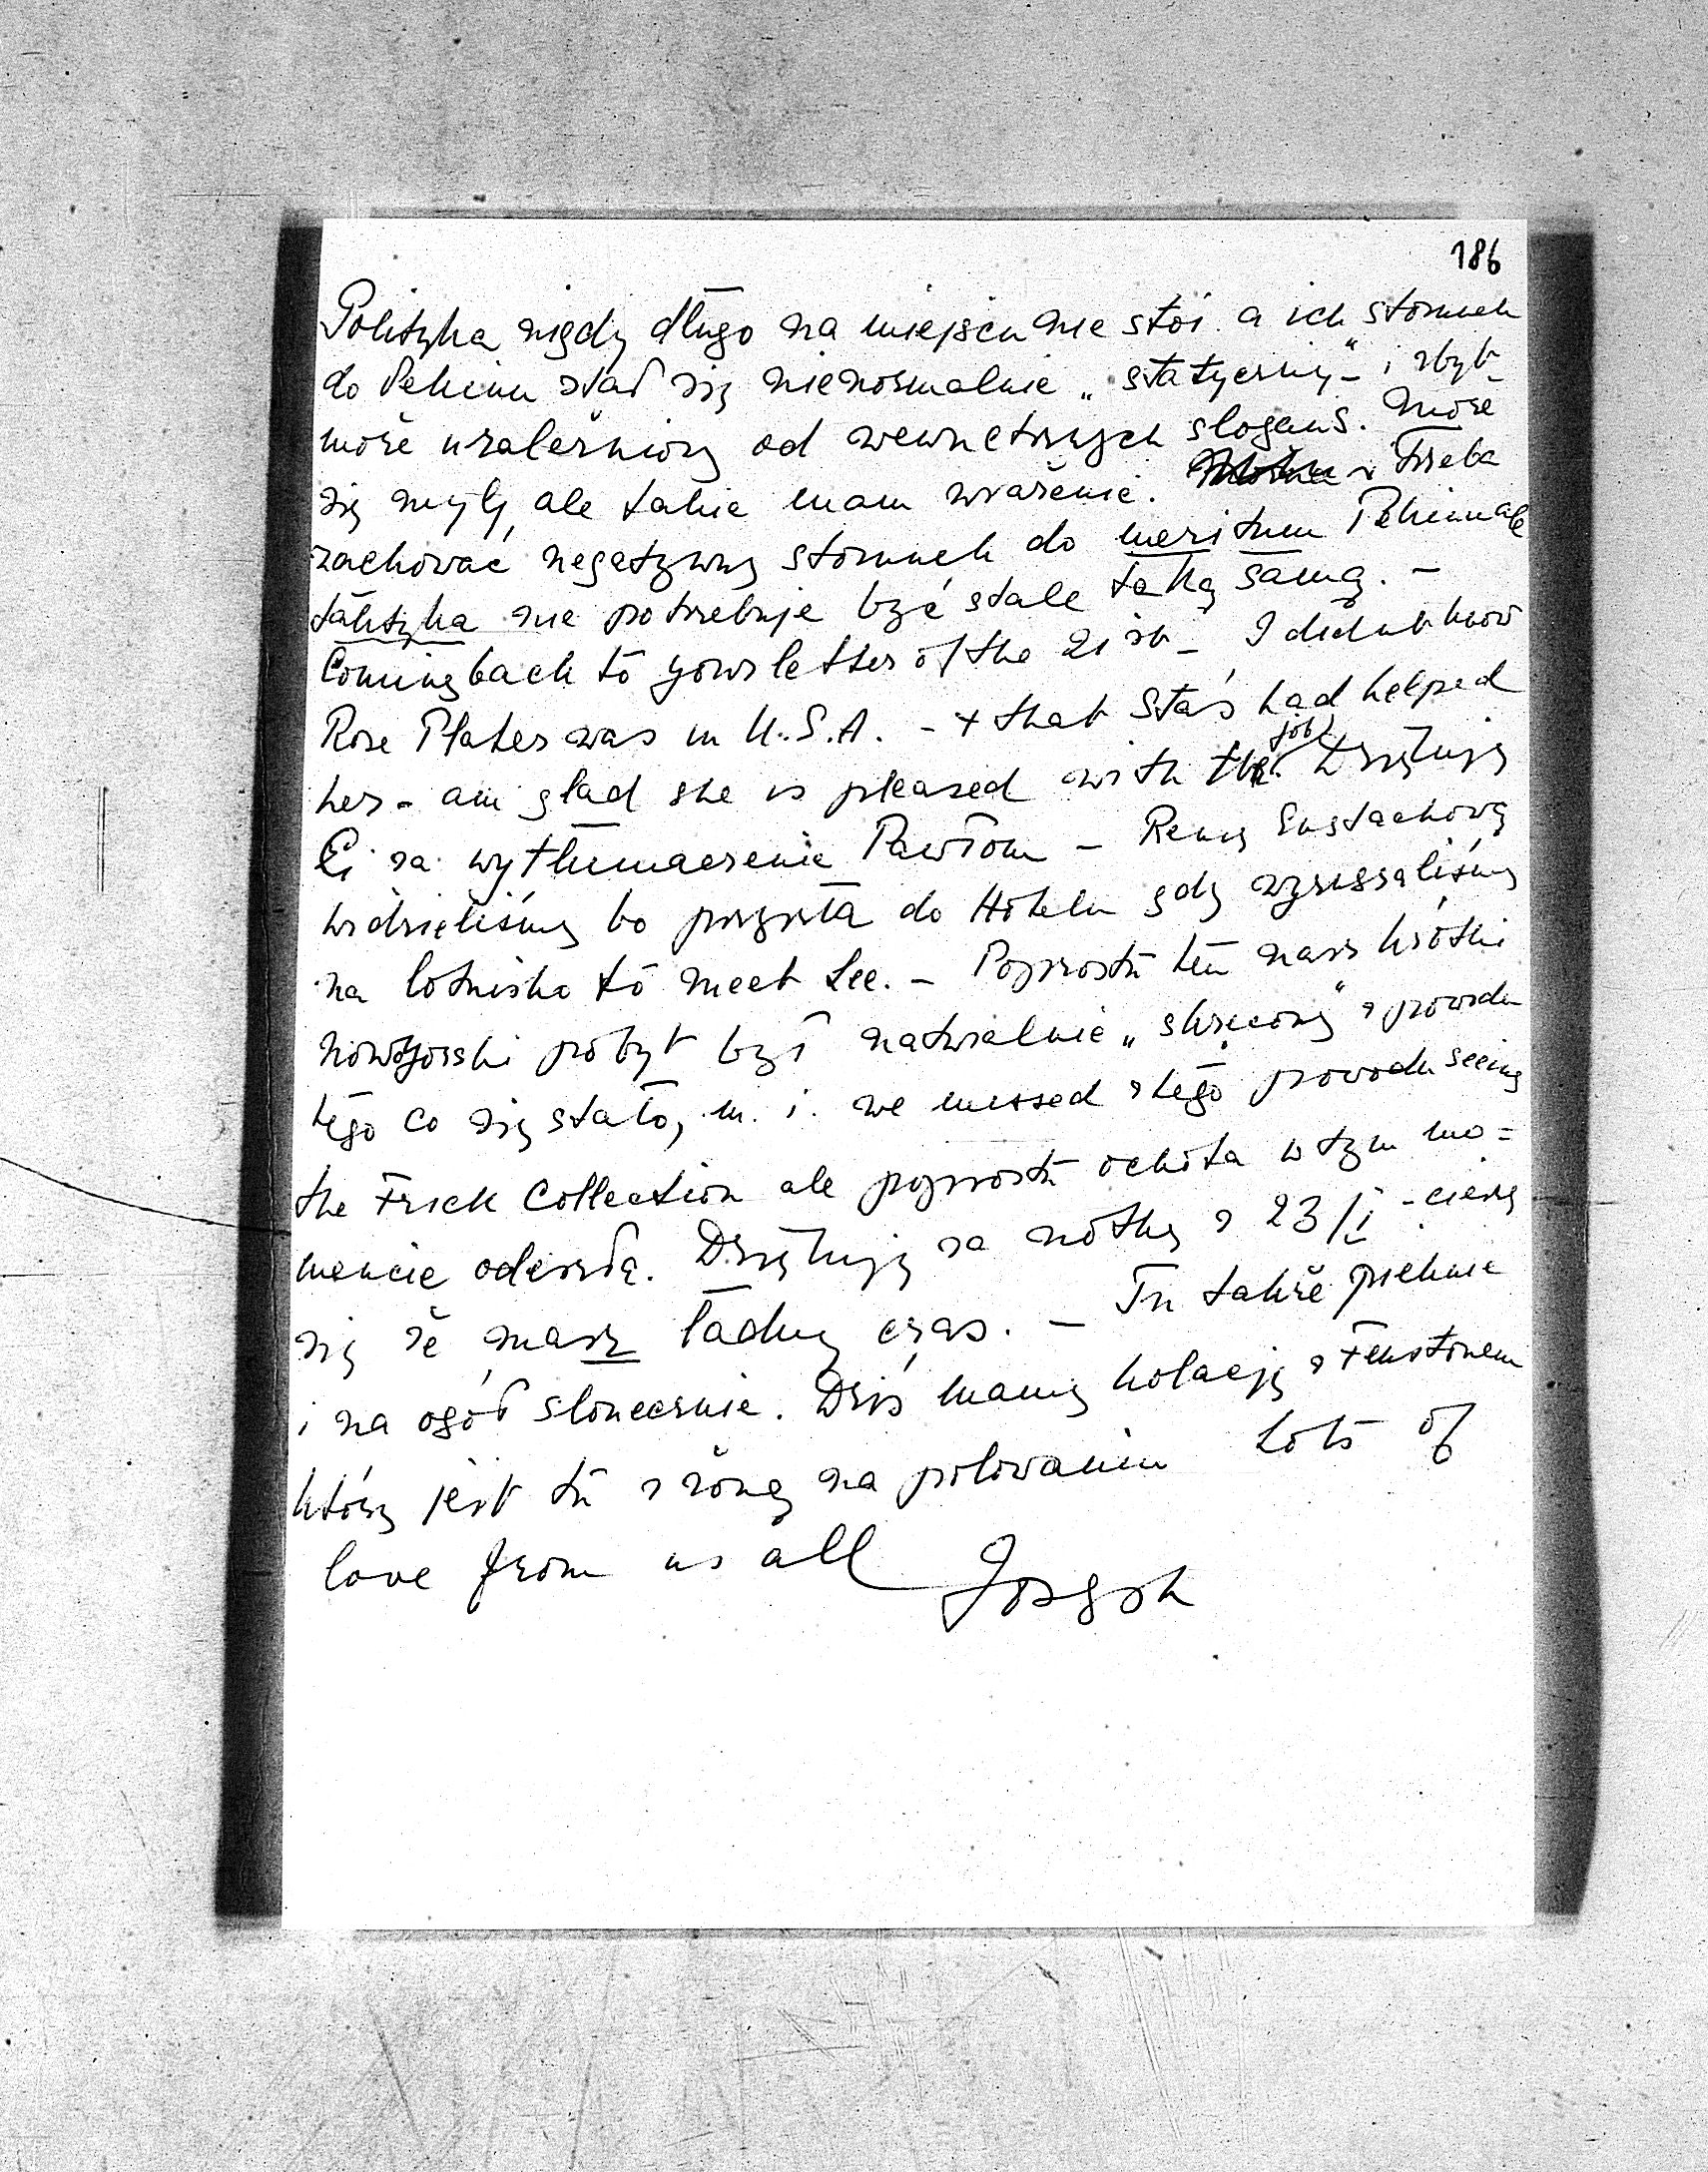 186
Polityka nigdy długo na miejscu nie stoi a ich stosunek
do Pekinu stał się nienormalnie „statyczny” i zbyt
może uzależniony od wewnętrznych slogans. Może
się mylę, ale takie mam wrażenie. Trzeba
zachować negatywny stosunek do meritum Pekinu ale
taktyka nie potrzebuje być stale taką samą. –
Coming back to your letter of the 21 st – I didnt know
Rose Plater was in U.S.A. – + that Staś had helped
her – am glad she is pleased with the job. Dziękuję
Ci za wytłumaczenie Pawłom – Renę Eustachową
widzieliśmy bo przyszła do Hotelu gdy wyruszaliśmy
na lotnisko to meet Lee. – Poprostu ten nasz krótki
nowojorski pobyt był naturalnie „skręcony” z powodu
tego co się stało, m. i. we missed z tego powodu seeing
the Frick Collection ale poprostu ochota w tym mo=
mencie odeszła. Dziękuję za notkę z 23/I – cieszę
się że masz ładny czas. – Tu także pięknie
i na ogół słonecznie. Dziś mamy kolację z
który jest tu z żoną na polowaniu Lots of
love from us all Joseph